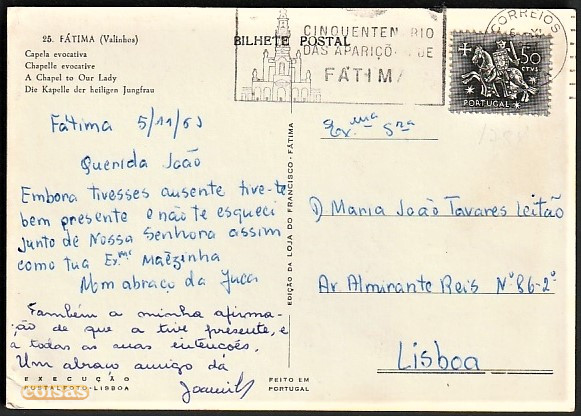 25. FÁTIMA (Valinhos)
Capela evocativa
Chapelle evocative
A Chapel to Our Lady
Die Kapelle der heiligen Jungfrau
BILHETE POSTAL
CINQUENTENÁRIO
DAS APARIÇÕES DE
FÁTIMA
CORREIOS
50
CTVS
PORTUGAL
Fátima 5/11/63
Querida João
Embora tivesses ausente tive-te
bem presente e não te esqueci
junto de Nossa Senhora assim
como tua Exma Mãezinha
Num abraço da Juca
Também a minha afirma-
ção de que a tive presente, e
a todas as suas intenções.
Um abraço amigo dá
EXECUÇÃO
FOSTALFOTO-LISBOA
FEITO EM
PORTUGAL
EDIÇÃO DA LOJA DO FRANCISCO - FÁTIMA
Ex.ma Sra
D Maria João Tavares Leitão
Av Almirante Reis Nº 86-2º
Lisboa
coisas